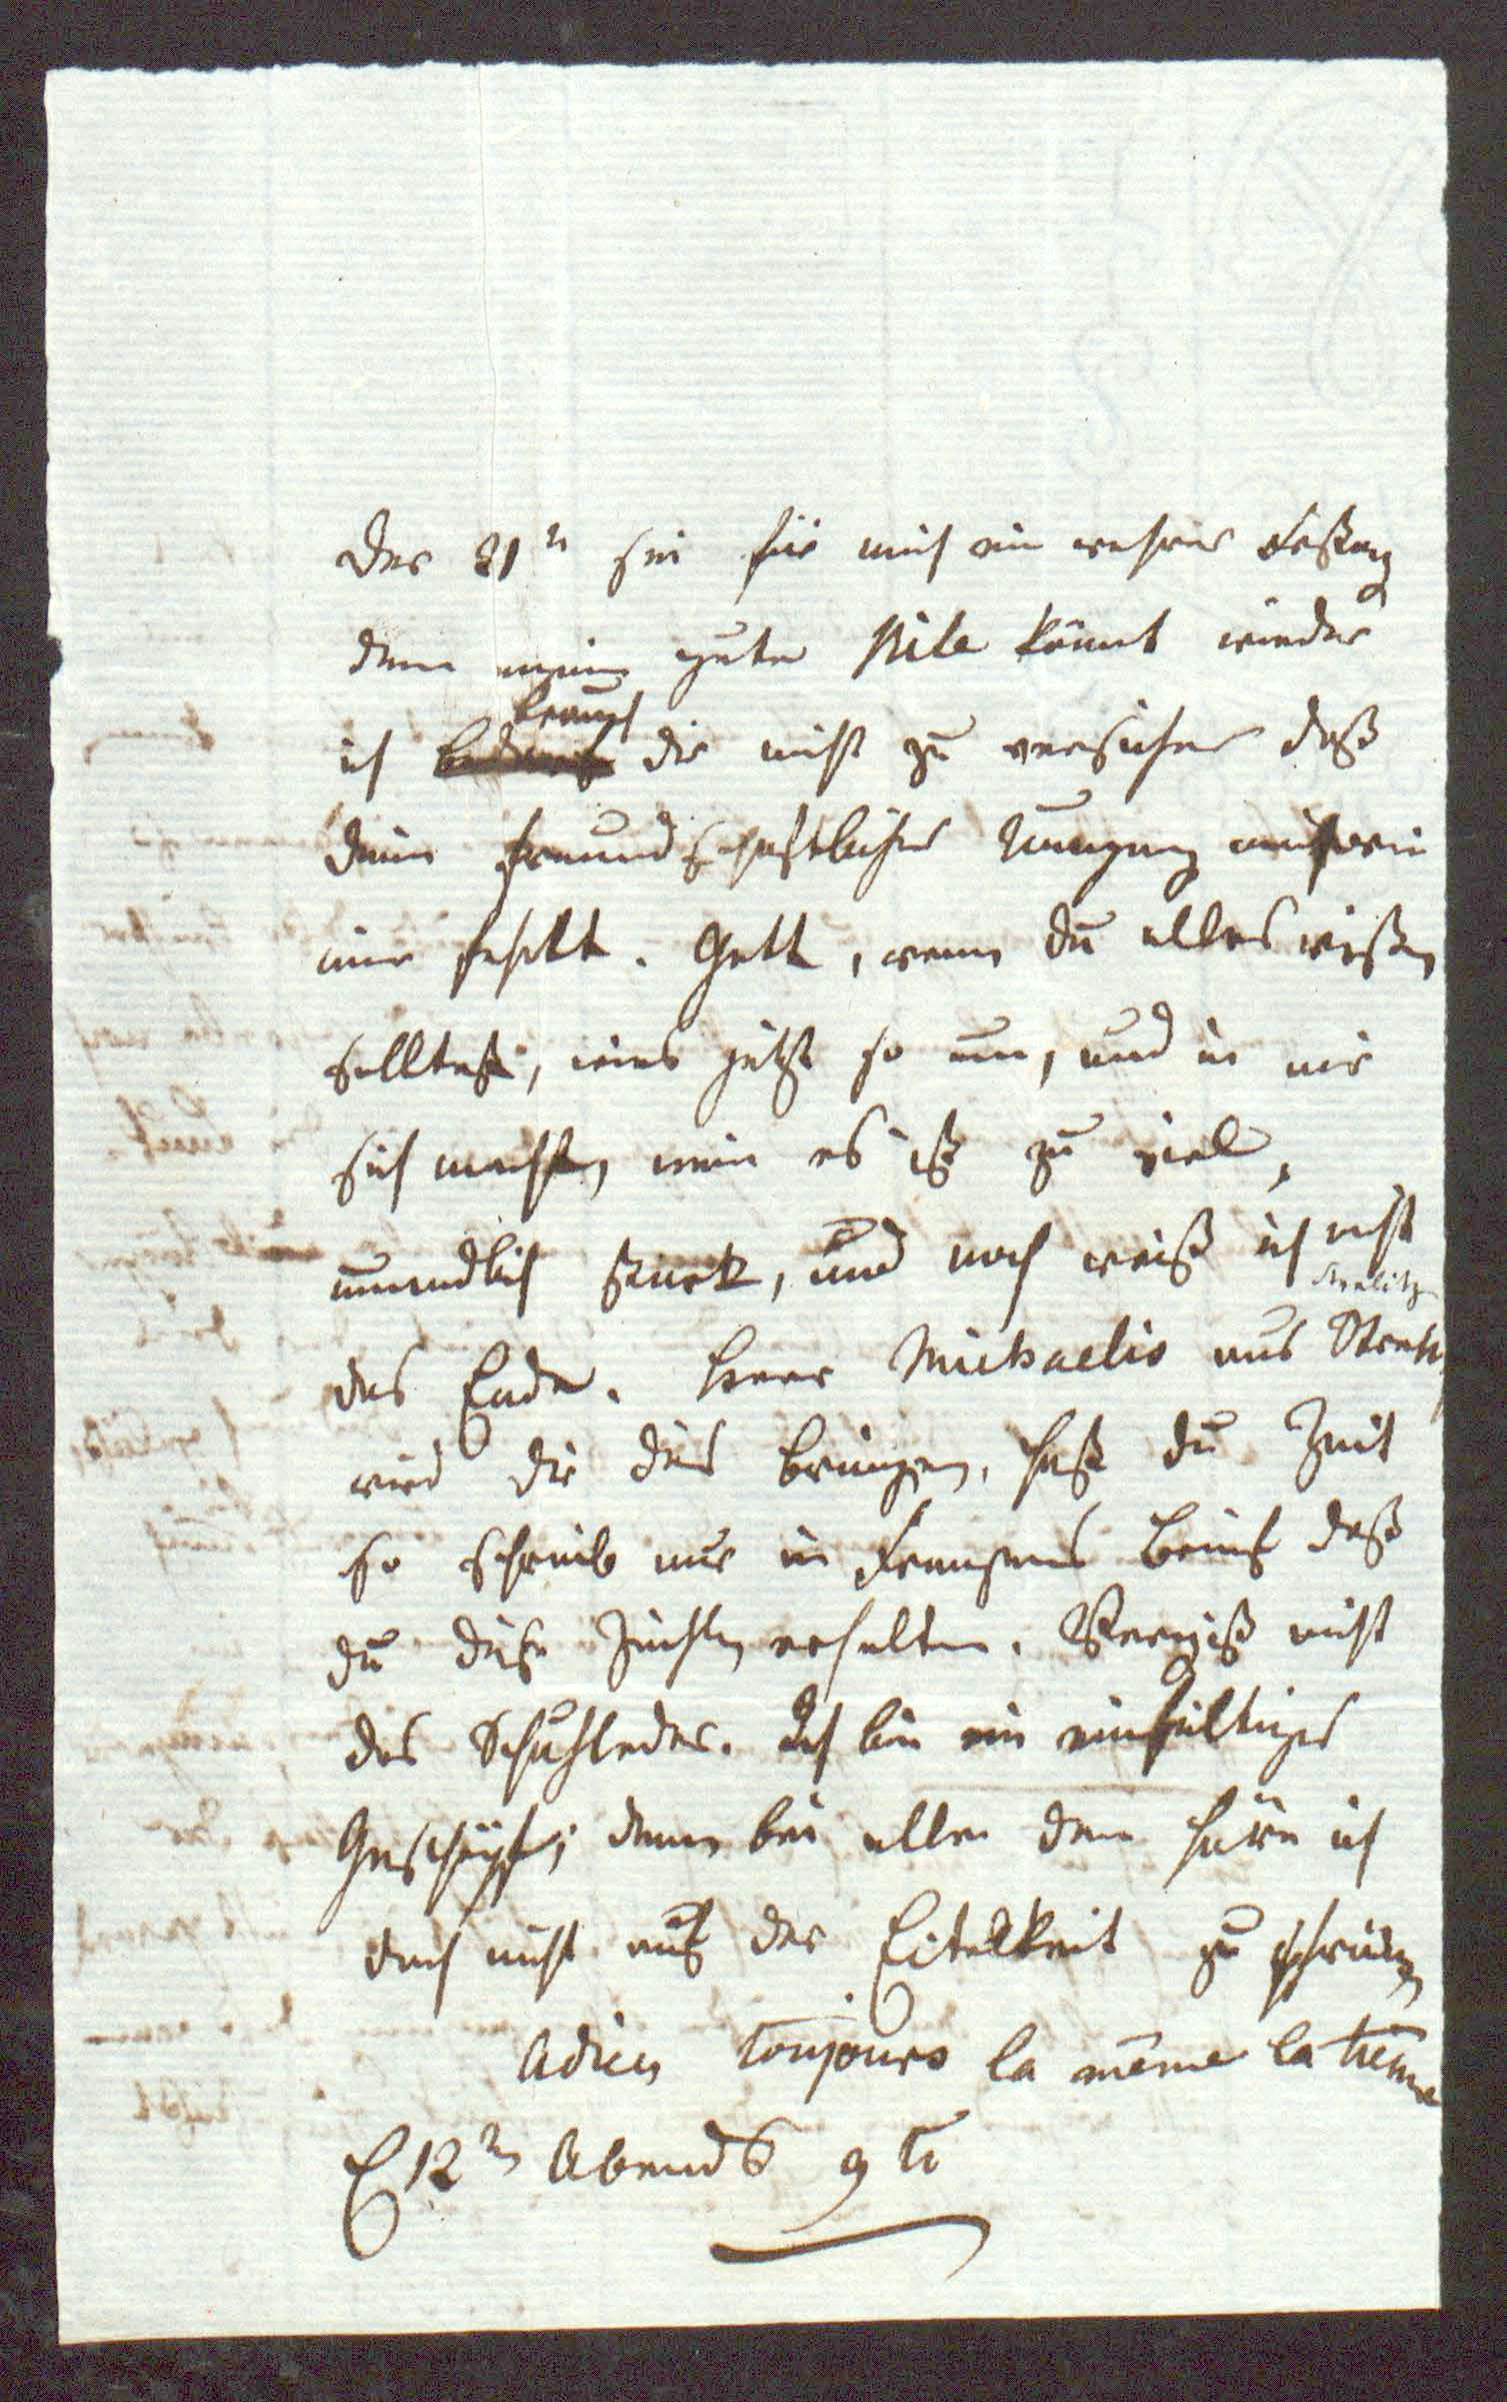 Der 21n sei für mich ein wahrer Festtag
denn meine gute Nite kömt wieder
ich brauch dir nicht zu versichern daß
dein freundschaftlicher Umgang
mir fehlt. Gott, wenn du alles wißen
solltest, was jetzt so um, und in mir
sich macht, nein es ist zu viel,
unendlich stark, und noch weiß ich nicht
das Ende. Herr Michaelis aus Strelitz
wird dir dies bringen, hast du Zeit
so schreib nur in Brief daß
du diese Zeilen erhalten. Vergiß nicht
das Schuhleder. Ich bin ein einfältiges
Geschöpf; denn bei allen dem höre ich
doch nicht auf der Eitelkeit zu
Adieu toujours la même la
E 12n Abends 9 U